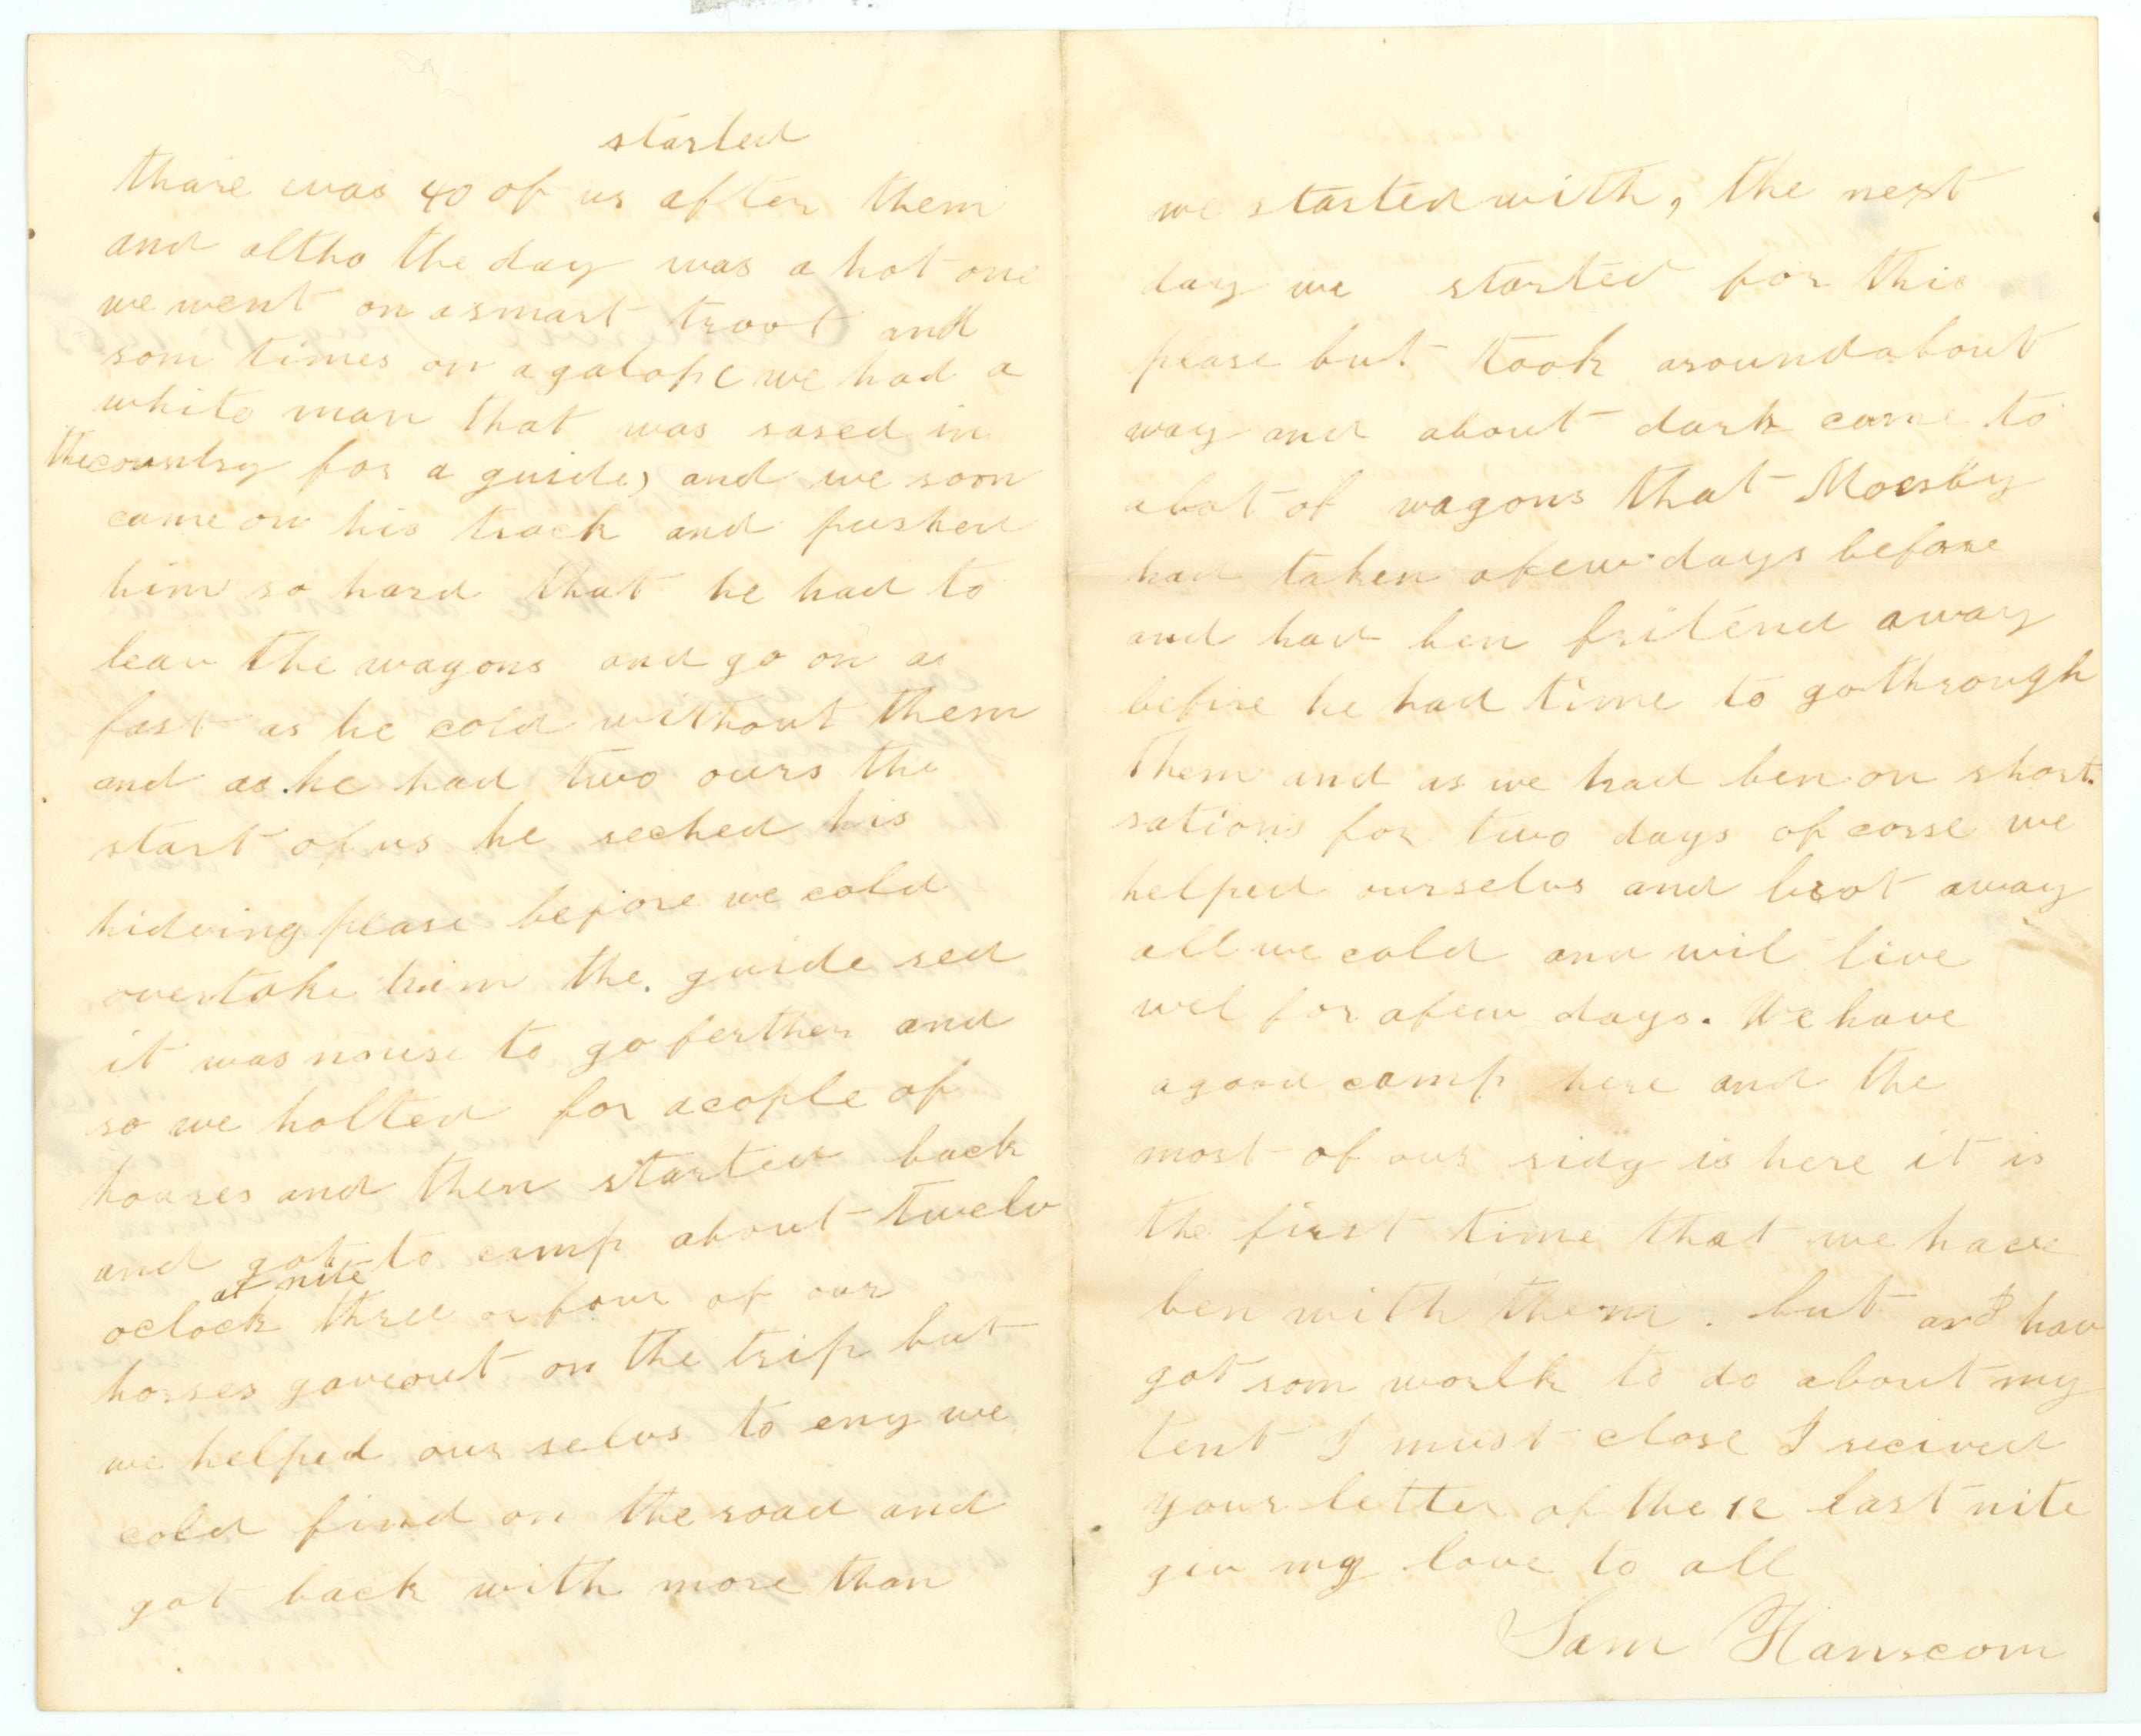 started
thare was 40 of us after them
and altho the day was a hot one
we went on a smart troot and
som times on a galope we had a
white man that was rased in
the country for a guide, and we soon
came on his track and pushed
him so hard that he had to
leav the wagons and go on as
fast as he cold without them
and as he had two ours the
start of us he reched his
hideing plase before we cold
overtake him the guide sed
it was no use to go ferther and
so we holted for a cople of
houres and then started back
and got to camp about twelv
at nite
oclock three or four of our
horses gave out on the trip but
we helped our selvs to eny we
cold find on the road and
got back with more than
we started with, the next
day we started for this
plase but took a roundabout
way and about dark came to
a lot of wagons that Moesby
had taken a few days before
and had ben fritend away
before he had time to go through
them and as we had ben on short
rations for two days of corse we
helped ourselvs and brot away
all we cold and wil live
wel for a few days. We have
a good camp here and the
most of our ridg is here it is
the first time that we have
ben with them. but as I hav
got som worlk to do about my
tent I must close I recived
your letter of the 12 last nite
giv my love to all
Sam Hanscom